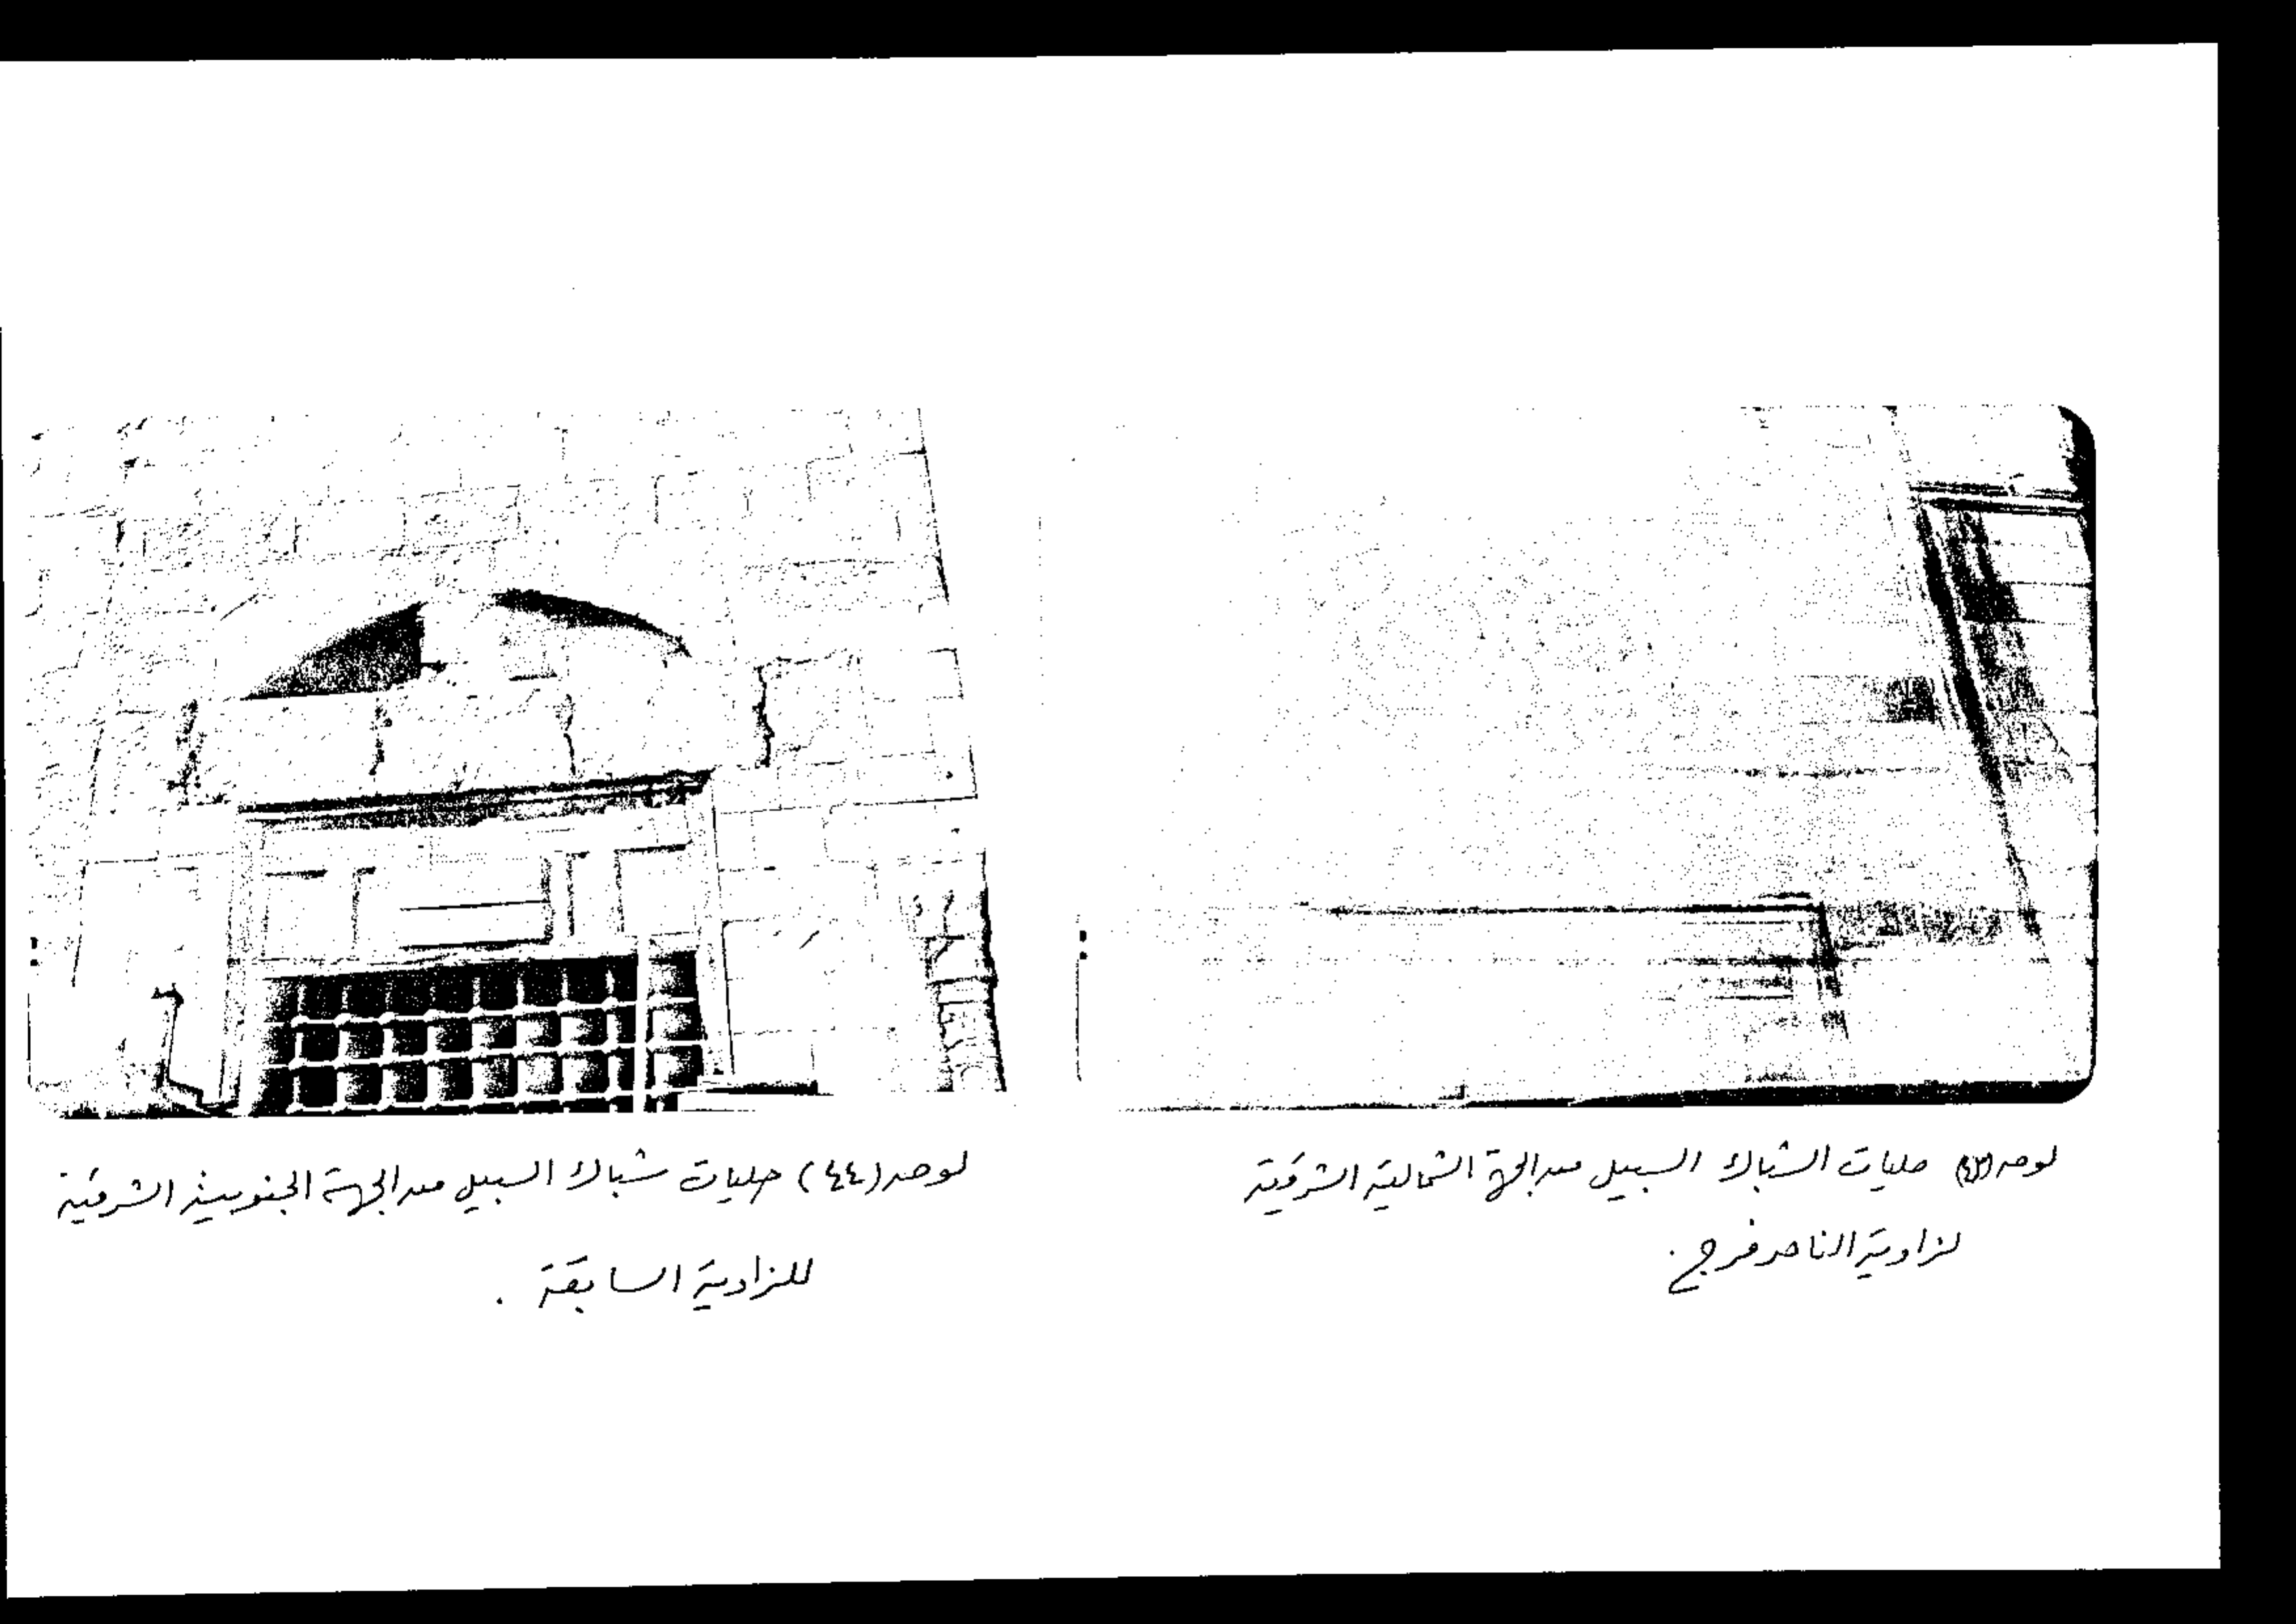 لوحه (٤٣) حليات الشباك السبيل من الجهة الشمالية الشرقية
لزاوية الناصر فرج .
لوحه (٤٤) حليات شباك السبيل من الجهة الجنوبية الشرقية
للزاوية السابقة .